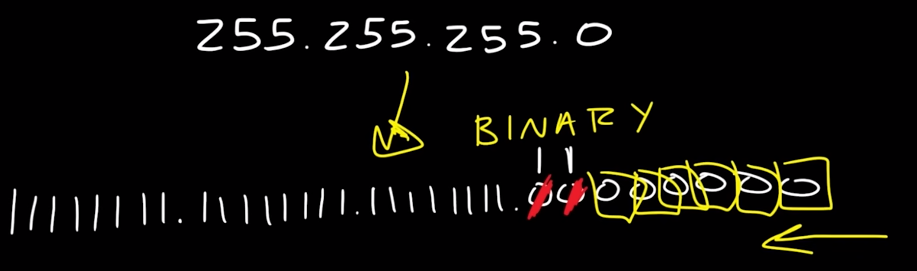 255.255.255.0
BINARY
1 1
11111111.11111111.11111111.00000000